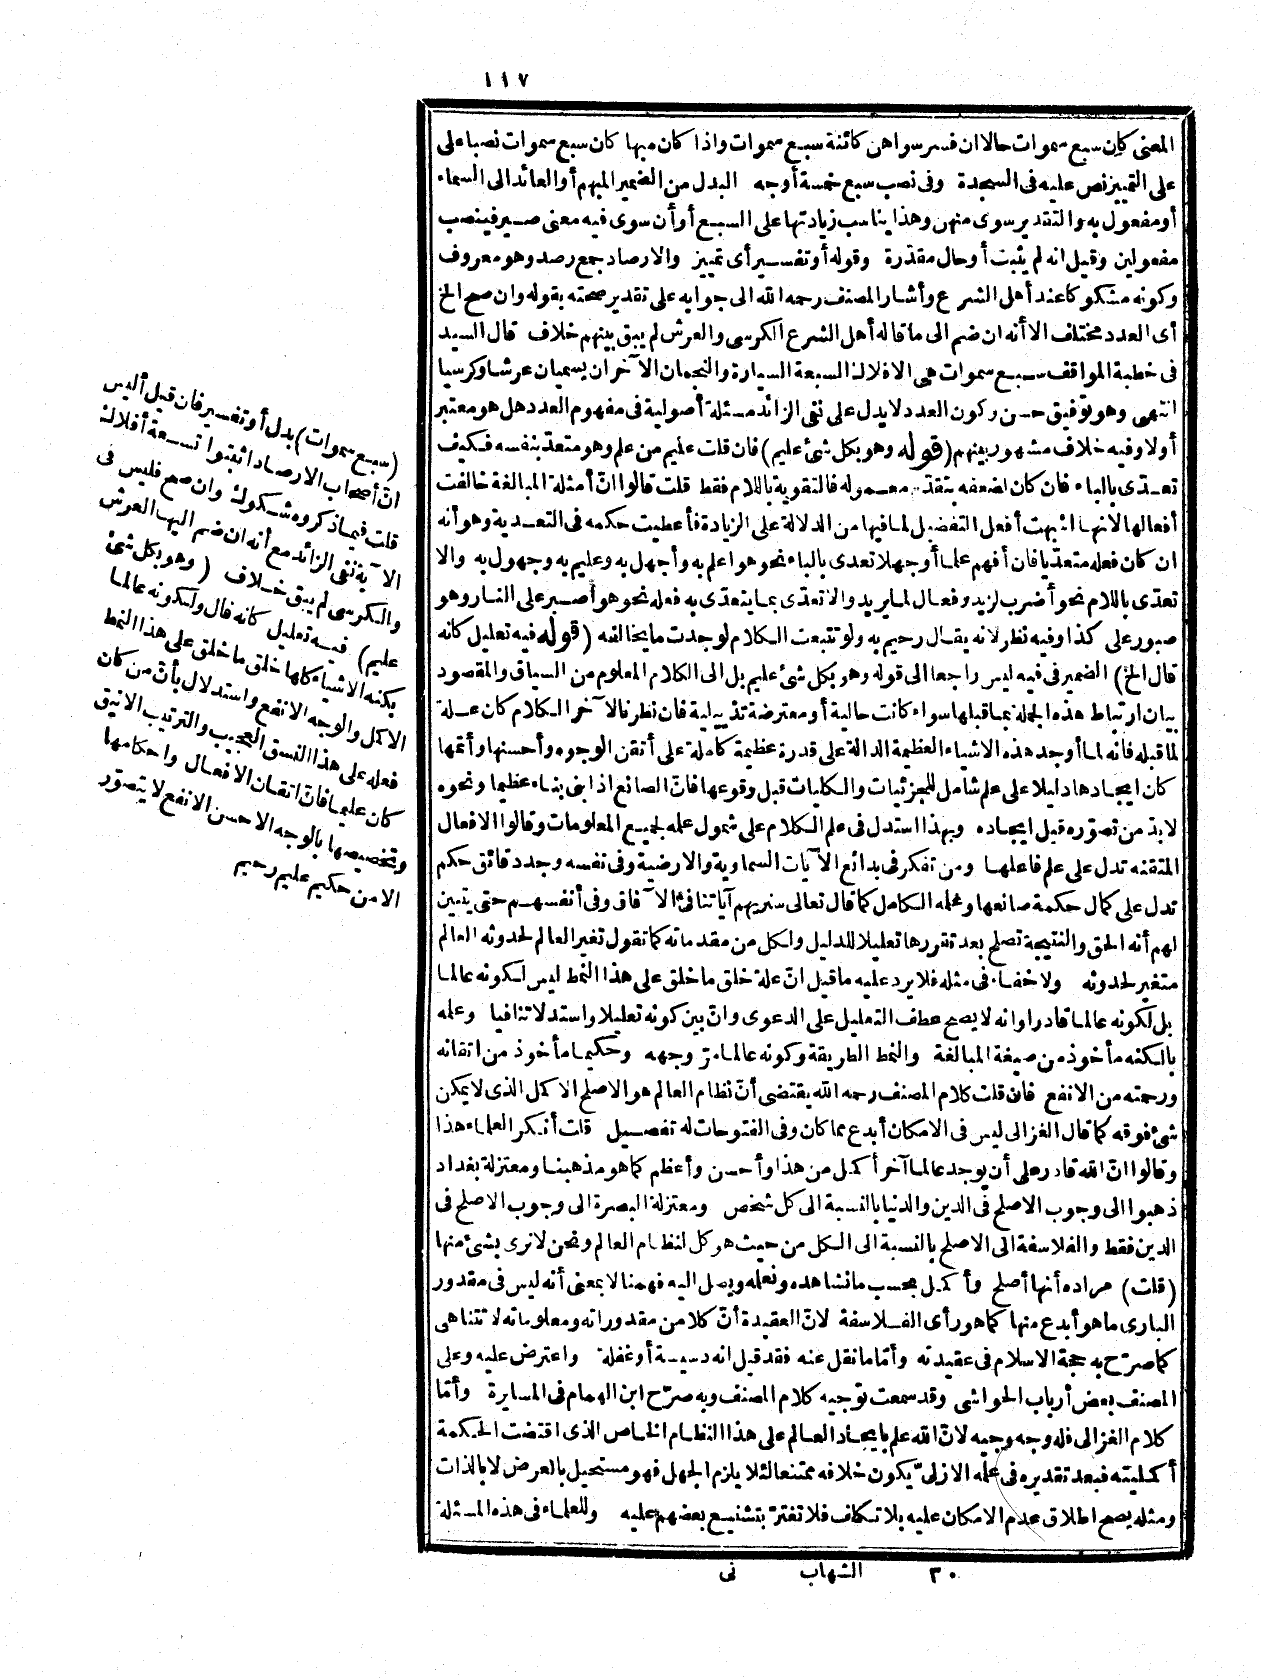 ١١٧
المعنى كان سبع سموات حالا ان فسر سواهن كائنة سبع سموات واذا كان مبهما كان سبع سموات نصبا على
على التمييز نص عليه فى السجدة وفى نصب سبع خمسة أوجه البدل من الضمير المبهم أو العائد الى السماء
أو مفعول به والتقدير سوى منهن وهذا يناسب زيادتها على السبع أو أن سوى فيه معنى صير فينصب
مفعولين وقيل انه لم يثبت أو حال مقدرة وقوله أو تفسير أى تمييز والارصاد جمع رصد وهو معروف
وكونه مشكوكا عند أهل الشرع وأشار المصنف رحمه الله الى جوابه على تقدير صحته بقوله وان صح الخ
أى العدد مختلف الا أنه ان ضم الى ما قاله أهل الشرع الكرسى والعرش لم يبق بينهم خلاف قال السيد
فى خطبة المواقف سبع سموات هى الافلاك السبعة السيارة والنجمان الآخران يسميان عرشا وكرسيا
انتهى وهو توفيق حسن وكون العدد لا يدل على نفى الزائد مسئلة أصولية فى مفهوم العدد هل هو معتبر
أولا وفيه خلاف مشهور بينهم (قوله وهو بكل شئ عليم) فان قلت عليم من علم وهو متعد بنفسه فكيف
تعدى بالباء فان كان لضعفه بتقدم معموله فالتقوية باللام فقط قلت قالوا ان أمثلة المبالغة خالفت
أفعالها لانها اشبهت أفعل التفضيل لما فيها من الدلالة على الزيادة فأعطيت حكمه فى التعدية وهو أنه
ان كان فعله متعديا فان أفهم علما أو جهلا تعدى بالباء نحو هو اعلم به وأجهل به وعليم به وجهول به والا
تعدى باللام نحو أضرب لزيد وفعال لما يريد والا تعدى بما يتعدى به فعله نحو هو أصبر على النار وهو
صبور على كذا وفيه نظر لانه يقال رحيم به ولو تتبعت الكلام لوجدت ما يخالفه (قوله فيه تعليل كانه
قال الخ) الضمير فى فيه ليس راجعا الى قوله وهو بكل شئ عليم بل الى الكلام المعلوم من السياق والمقصود
بيان ارتباط هذه الجملة بما قبلها سواء كانت حالية أو معترضة تذييلية فان نظر نا لآخر الكلام كان علة
لما قبله فانه لما أوجد هذه الاشياء العظيمة الدالة على قدرة عظيمة كاملة على أتقن الوجوه وأحسنها وأتمها
كان ايجادها دليلا على علم شامل للجزئيات والكليات قبل وقوعها فان الصانع اذا بنى بناء عظيما ونحوه
لابد من تصوره قبل ايجاده وبهذا استدل فى علم الكلام على شمول علمه لجميع المعلومات وقالوا الافعال
المتقنه تدل على علم فاعلها ومن تفكر فى بدائع الآيات السماوية والارضية وفى نفسه وجد دقائق حكم
تدل على كمال حكمة صانعها وعلمه الكامل كما قال تعالى سنريهم آياتنا فى الآفاق وفى أنفسهم حتى يتبين
لهم أنه الحق والنتيجة تصلح بعد تقررها تعليلا للدليل ولكل من مقدماته كما تقول تغير العالم لحدوثه العالم
متغير لحدوثه ولا خفاء فى مثله فلا يرد عليه ما قيل ان علة خلق ما خلق على هذا النمط ليس لكونه عالما
بل لكونه عالما قادرا وانه لا يصح عطف التعليل على الدعوى وان بين كونه تعليلا واستدلا تنافيا وعلمه
بالكنه مأخوذ من صيغة المبالغة والنمط الطريقة وكونه عالما مر وجهه وحكيما مأخوذ من اتقانه
ورحمته من الانفع فان قلت كلام المصنف رحمه الله يقتضى أن نظام العالم هو الاصلح الاكمل الذى لا يمكن
شئ فوقه كما قال الغزالى ليس فى الامكان أبدع مما كان وفى الفتوحات له تفصيل قلت أنكر العلماء هذا
وقالوا ان الله قادر على أن يوجد عالما آخر أكمل من هذا وأحسن وأعظم كما هو مذهبنا ومعتزلة بغداد
ذهبوا الى وجوب الاصلح فى الدين والدنيا بالنسبة الى كل شخص ومعتزلة البصرة الى وجوب الاصلح فى
الدين فقط والفلاسفة الى الاصلح بالنسبة الى الكل من حيث هو كل لنظام العالم ونحن لا نرى بشئ منها
(قلت) مراده أنها أصلح وأكمل بحسب ما نشاهده ونعلمه ويصل اليه فهمنا لا بمعنى أنه ليس فى مقدور
البارى ما هو أبدع منها كما هو رأى الفلاسفة لان العقيدة أن كلا من مقدوراته ومعلوماته لا تتناهى
كما صرح به حجة الاسلام فى عقيدته وأما ما نقل عنه فقد قيل انه دسيسة أو غفلة واعترض عليه وعلى
المصنف بعض أرباب الحواشى وقد سمعت توجيه كلام المصنف وبه صرح ابن الهمام فى المسايرة وأما
كلام الغزالى فله وجه وجيه لان الله علم بايجاد العالم على هذا النظام الخاص الذى اقتضت الحكمة
أكمليته فبعد تقديره فى علمه الازلى يكون خلافه ممتنعا لئلا يلزم الجهل فهو مستحيل بالعرض لا بالذات
ومثله يصح اطلاق عدم الامكان عليه بلا تكلف فلا تغتر بتشنيع بعضهم عليه وللعلماء فى هذه المسئلة
٣٠ الشهاب نى
(سبع سموات) بدل أو تفسير فان قيل أليس
ان أصحاب الارصاد اثبتوا تسعة أفلاك
قلت فيما ذكروه شكوك وان صح فليس فى
الآية نفى الزائد مع أنه ان ضم اليها العرش
والكرسى لم يبق خلاف (وهو بكل شئ
عليم) فيه تعليل كانه قال ولكونه عالما
بكنه الاشياء كلها خلق ما خلق على هذا النمط
الاكمل والوجه الانفع واستدلال بأن من كان
فعله على هذا النسق العجيب والترتيب الانيق
كان عليما فان اتقان الافعال واحكامها
وتخصيصها بالوجه الاحسن الانفع لا يتصور
الا من حكيم عليم رحيم